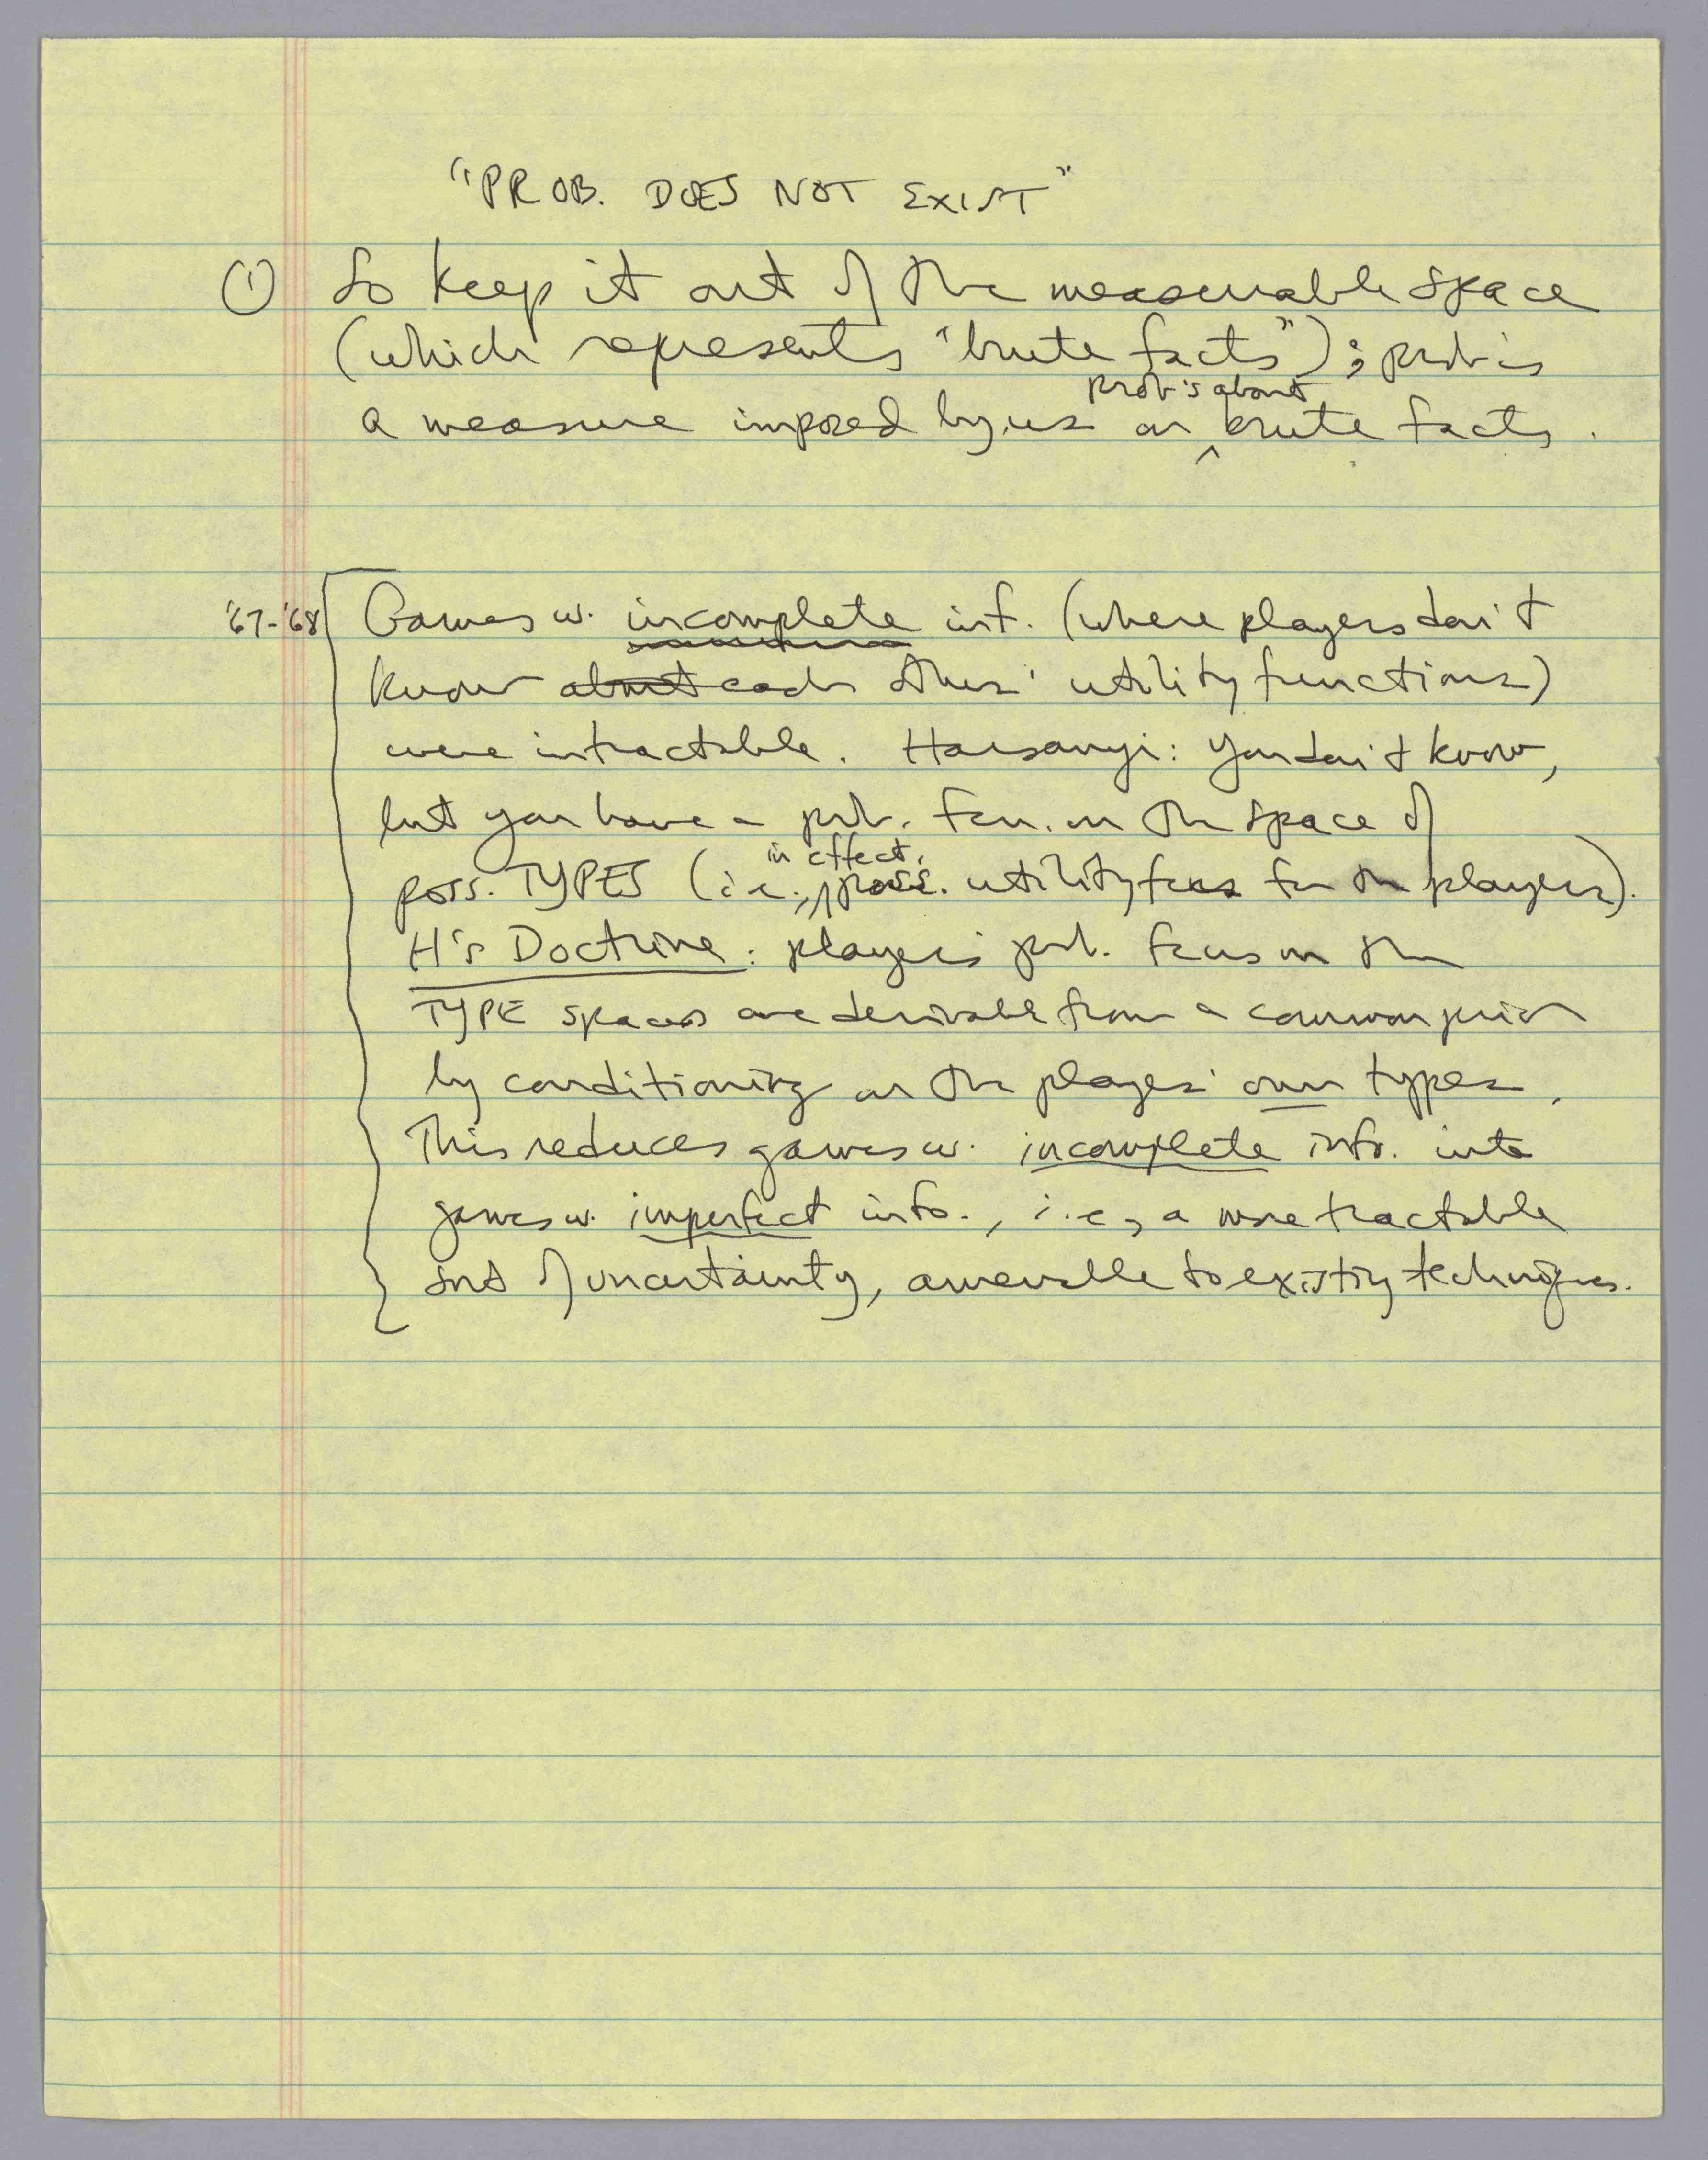 "PROB. DOES NOT EXIST"
① So keep it out of the measurable space
(which represents "brute facts"); prob is
prob's about
a measure imposed by us on ^ brute facts.
'67-'68 Games w. incomplete inf. (where players don't
know about each others' utility functions)
were intractable. Harsanyi: You don't know,
but you have a prob. fcn. on the space of
in effect,
poss. TYPES (i.e., poss. utility fcns for the players).
H's Doctrine: players' prob. fcns on the
TYPE spaces are derivable from a common prior
by conditioning on the players' own types.
This reduces games w. incomplete info. into
games w. imperfect info., i.e., a more tractable
sort of uncertainty, amenable to existing techniques.